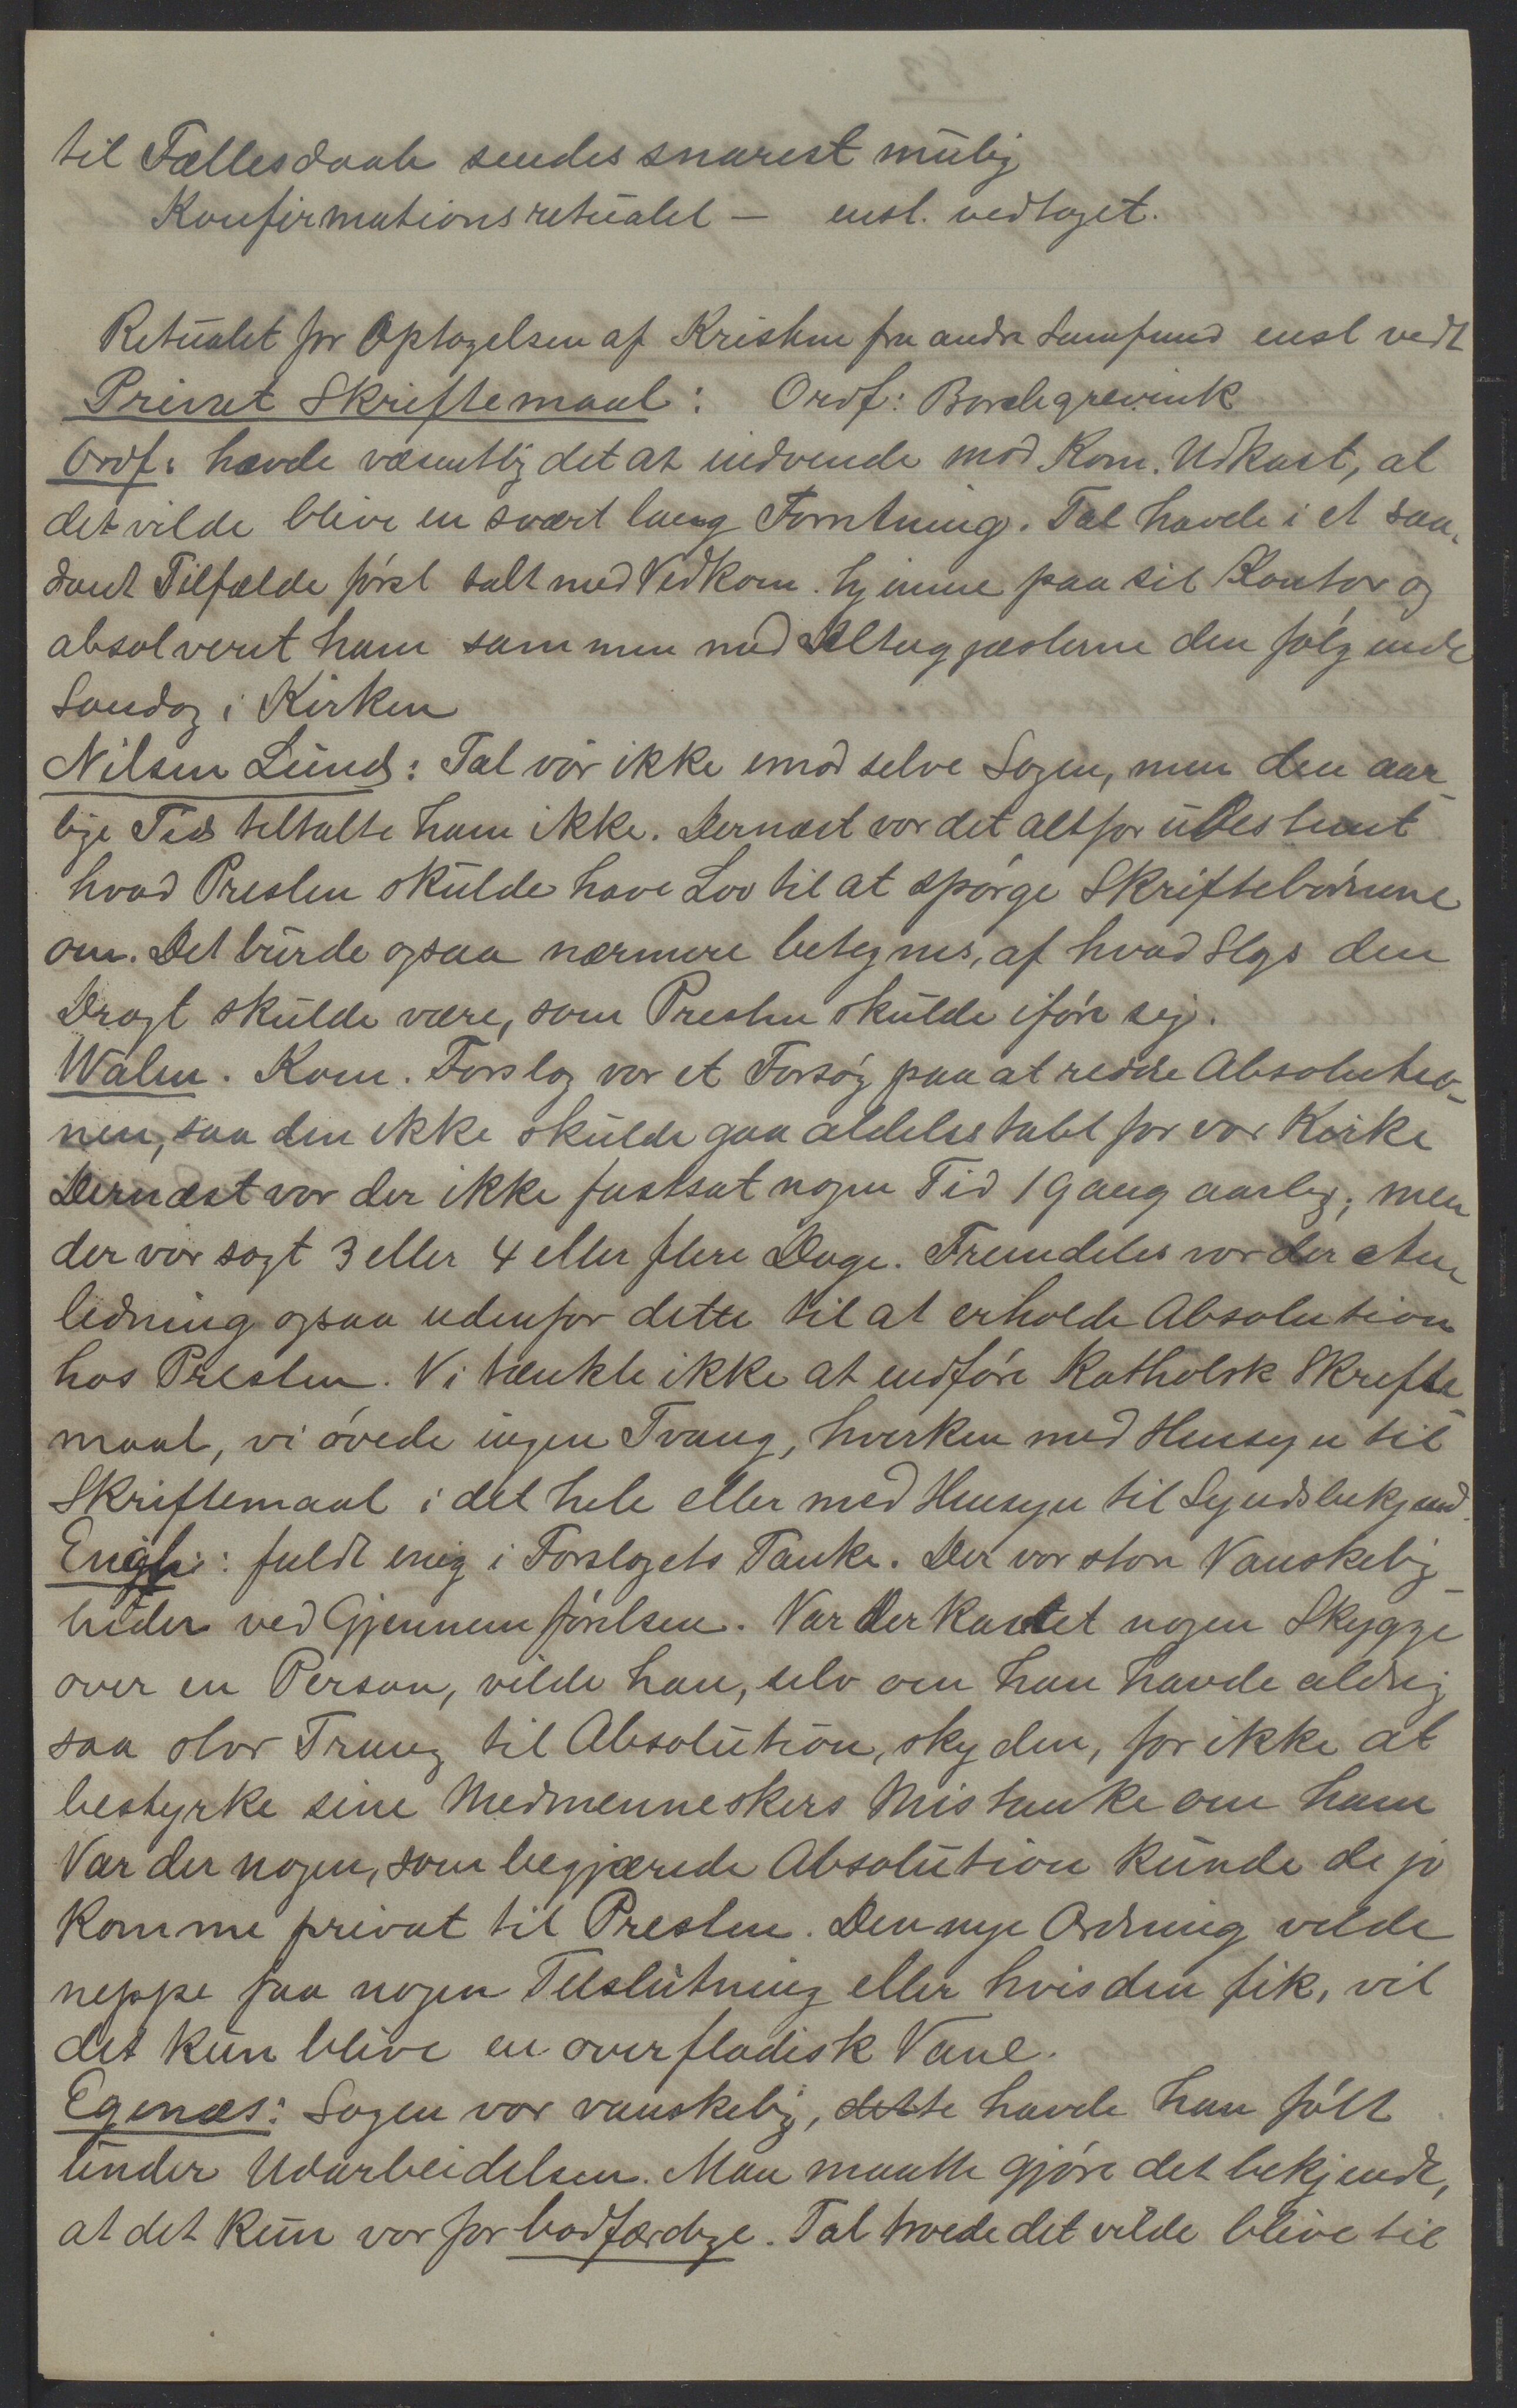 til Fællesdaab sendes snarest mulig
Konfirmationsritualet — enst. vedtaget.
Ritualet for Optagelsen af Kristne fra andre Samfund enst vedt
Privat Skriftemaal: Ordf: Borchgrevink
Ordf: havde væsentlig det at indvende mod Kom. Udkast, at
det vilde blive en svært lang Forretning. Tal havde i et saa-
dant Tilfælde først talt med Vedkom. hjemme paa sit Kontor og
absolveret ham sammen med Altergjæsterne den følgende
Søndag i Kirken
Nilsen Lund: Tal var ikke imod selve Sagen, men den aar-
lige Tid tiltalte ham ikke. Dernæst var det altfor ubestemt
hvad Presten skulde have Lov til at spørge Skriftebørnene
om. Det burde ogsaa nærmere betegnes, af hvad Slgs den
Dragt skulde være, som Presten skulde iføre sig.
Walen. Kom. Forslag var et Forsøg paa at redde Absolutio-
nen, saa den ikke skulde gaa aldeles tabt for vor Kirke
Dernæst var der ikke fastsat nogen Tid 1 Gang aarlig, men
der var sagt 3 eller 4 eller flere Dage. Fremdeles var der An
ledning ogsaa udenfor dette til at erholde Absolution
hos Presten. Vi tænkte ikke at indføre Katholsk Skrifte-
maal, vi øvede ingen Tvang, hverken med Hensyn til
Skriftemaal i det hele eller med Hensyn til Syndsbekjend.
Engh: fuldt enig i Forslagets Tanke. Der var store Vanskelig-
heder ved Gjennemførelsen. Var der kastet nogen Skygge
over en Person, vilde han, selv om han havde aldrig
saa stor Trang til Absolution, sky den, for ikke at
bestyrke sine Medmenneskers Mistanke om ham
Var der nogen, som begjærede Absolution kunde de jo
komme privat til Presten. Den nye Ordning vilde
neppe faa nogen Tilslutning eller hvis den fik, vil
det kun blive en overfladisk Vane.
Egenæs: Sagen var vanskelig, dette havde han følt
under Udarbeidelsen. Man maatte gjøre det bekjendt,
at det kun var for bodfærdige. Tal troede det vilde blive til